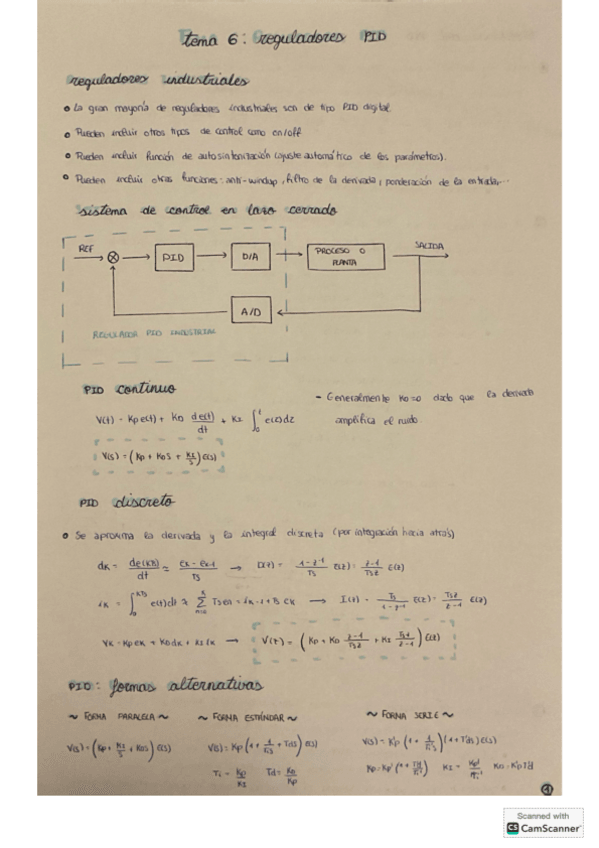 tema 6: reguladores PID
reguladores industriales
• La gran mayoría de reguladores industriales son de tipo PID digital
• Pueden incluir otros tipos de control como on/off
• Pueden incluir función de autosintonización (ajuste automático de los parámetros).
• Pueden incluir otras funciones: anti-windup, filtro de la derivada, ponderación de la entrada,...
sistema de control en lazo cerrado
REF
PID
D/A
PROCESO O PLANTA
SALIDA
A/D
REGULADOR PID INDUSTRIAL
PID continuo
- Generalmente KD=0 dado que la derivada
amplifica el ruido
V(t) = Kp e(t) + KD de(t)/dt + KI ∫₀ᵗ e(τ)dτ
V(s) = (Kp + KDS + KI/S) E(s)
PID discreto
• Se aproxima la derivada y la integral discreta (por integración hacia atrás)
dK = de(KTs)/dt ≈ (eK - eK-1)/Ts → D(z) = (1 - z⁻¹)/Ts E(z) = (z-1)/(Tsz) E(z)
iK = ∫₀ᴷᵀˢ e(t)dt ≈ Σ Ts en = iK-1 + Ts eK → I(z) = Ts/(1 - z⁻¹) E(z) = Tsz/(z-1) E(z)
VK = Kp eK + KD dK + KI iK → V(z) = (Kp + KD (z-1)/(Tsz) + KI Tsz/(z-1)) E(z)
PID: formas alternativas
~ FORMA PARALELA ~ ~ FORMA ESTÁNDAR ~ ~ FORMA SERIE ~
V(s) = (Kp + KI/S + KDS) E(s) V(s) = Kp (1 + 1/TiS + TdS) E(s) V(s) = K'p (1 + 1/Ti'S)(1 + Td'S) E(s)
Ti = Kp/KI Td = KD/Kp Kp = Kp' (1 + Td'/Ti') KI = Kp'/Ti' KD = K'p Td'
1
Scanned with
CS CamScanner